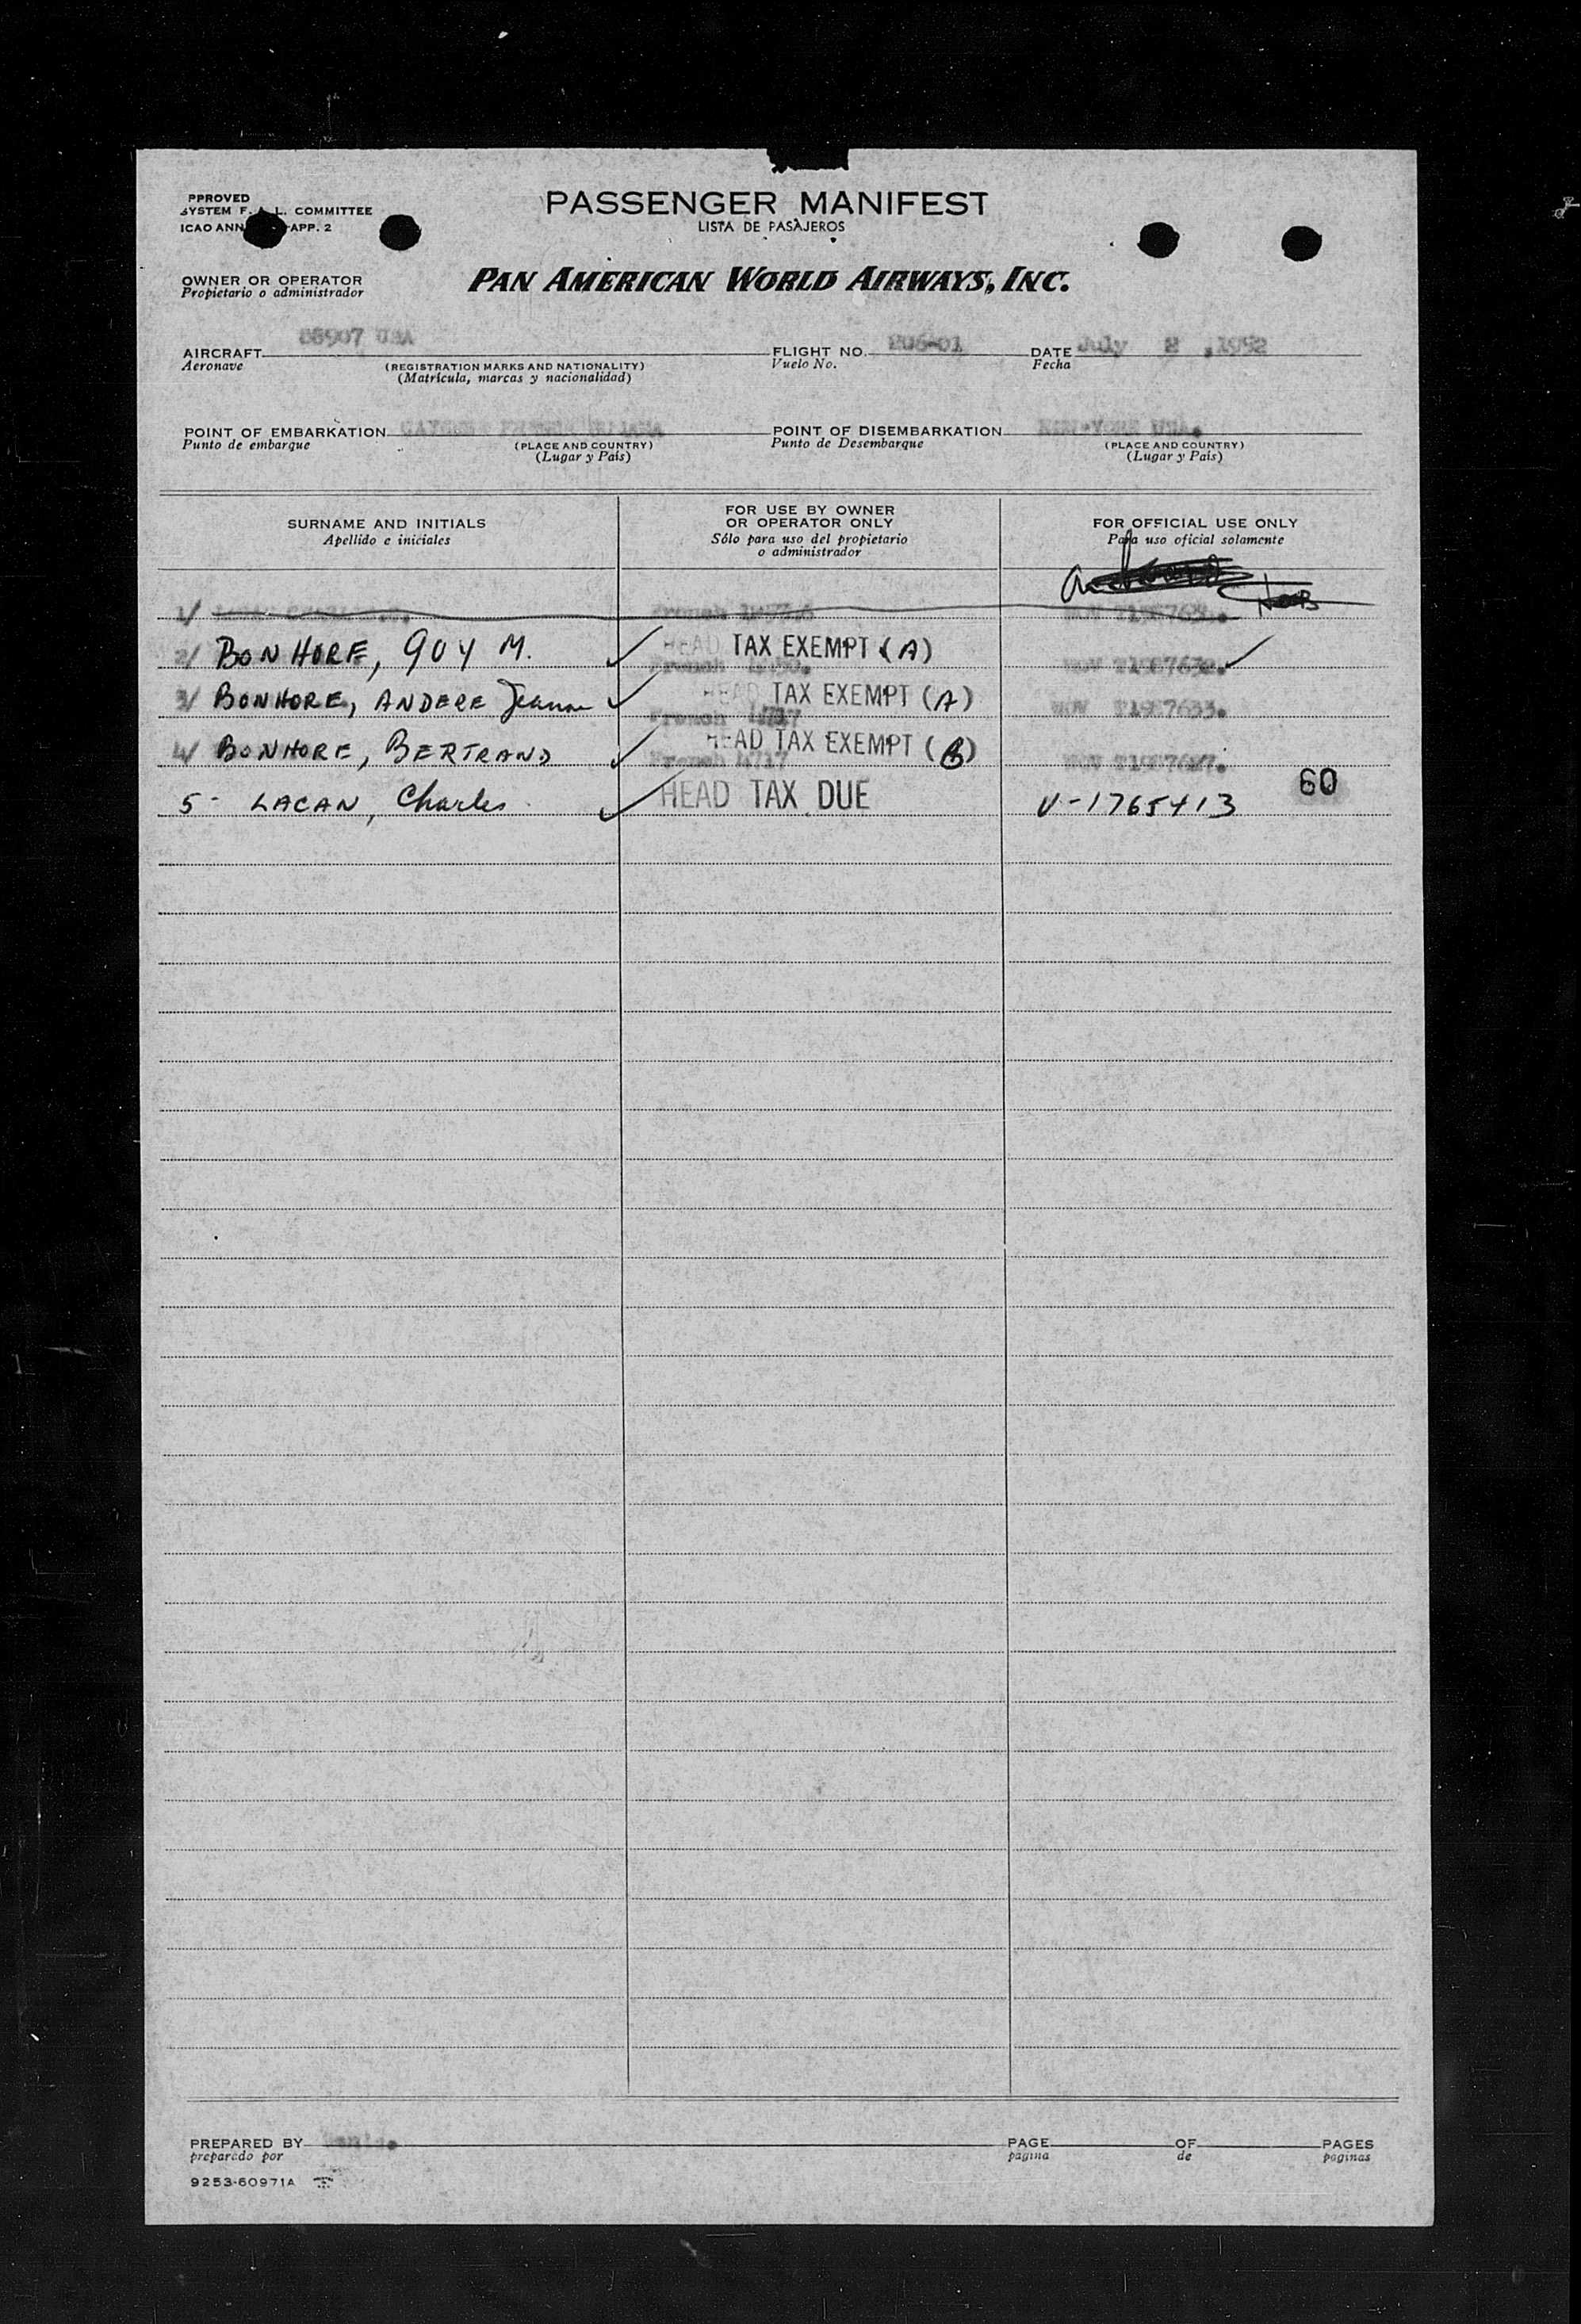 PPROVED
SYSTEM F. A. L. COMMITTEE
ICAO ANN APP. 2
PASSENGER MANIFEST
LISTA DE PASAJEROS
OWNER OR OPERATOR
Propietario o administrador
PAN AMERICAN WORLD AIRWAYS, INC.
88907 USA
206-01
July 2 ,1952
AIRCRAFT
Aeronave
(REGISTRATION MARKS AND NATIONALITY)
(Matrícula, marcas y nacionalidad)
FLIGHT NO.
Vuelo No.
DATE
Fecha
POINT OF EMBARKATION
Punto de embarque
(PLACE AND COUNTRY)
(Lugar y País)
POINT OF DISEMBARKATION NEW-YORK USA.
Punto de Desembarque
(PLACE AND COUNTRY)
(Lugar y País)
SURNAME AND INITIALS
Apellido e iniciales
FOR USE BY OWNER
OR OPERATOR ONLY
Sólo para uso del propietario
o administrador
FOR OFFICIAL USE ONLY
Para uso oficial solamente
1/
2/ BONHORE, GUY M. HEAD TAX EXEMPT (A)
French
3/ BONHORE, ANDERE Jeanne HEAD TAX EXEMPT (A)
French 4717 T1987633.
4/ BONHORE, BERTRAND HEAD TAX EXEMPT (B)
French 4717
5- LACAN, Charles HEAD TAX DUE V-1765413 60
PREPARED BY
preparado por
PAGE OF PAGES
página de páginas
9253-60971A